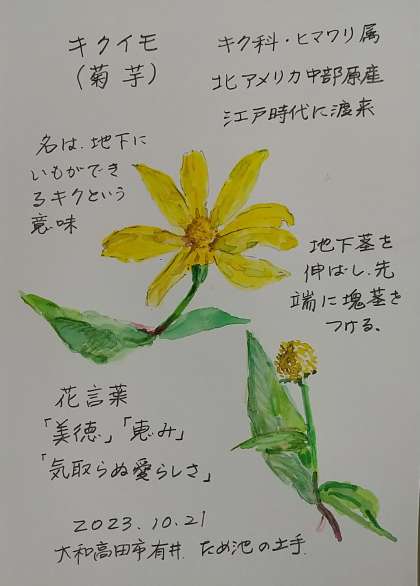 キクイモ
(菊芋)
キク科・ヒマワリ属
北アメリカ中部原産
江戸時代に渡来
名は、地下に
いもができ
るキクという
意味
地下茎を
伸ばし、先
端に塊茎を
つける。
花言葉
「美徳」「恵み」
「気取らぬ愛らしさ」
2023.10.21
大和高田市有井 ため池の土手